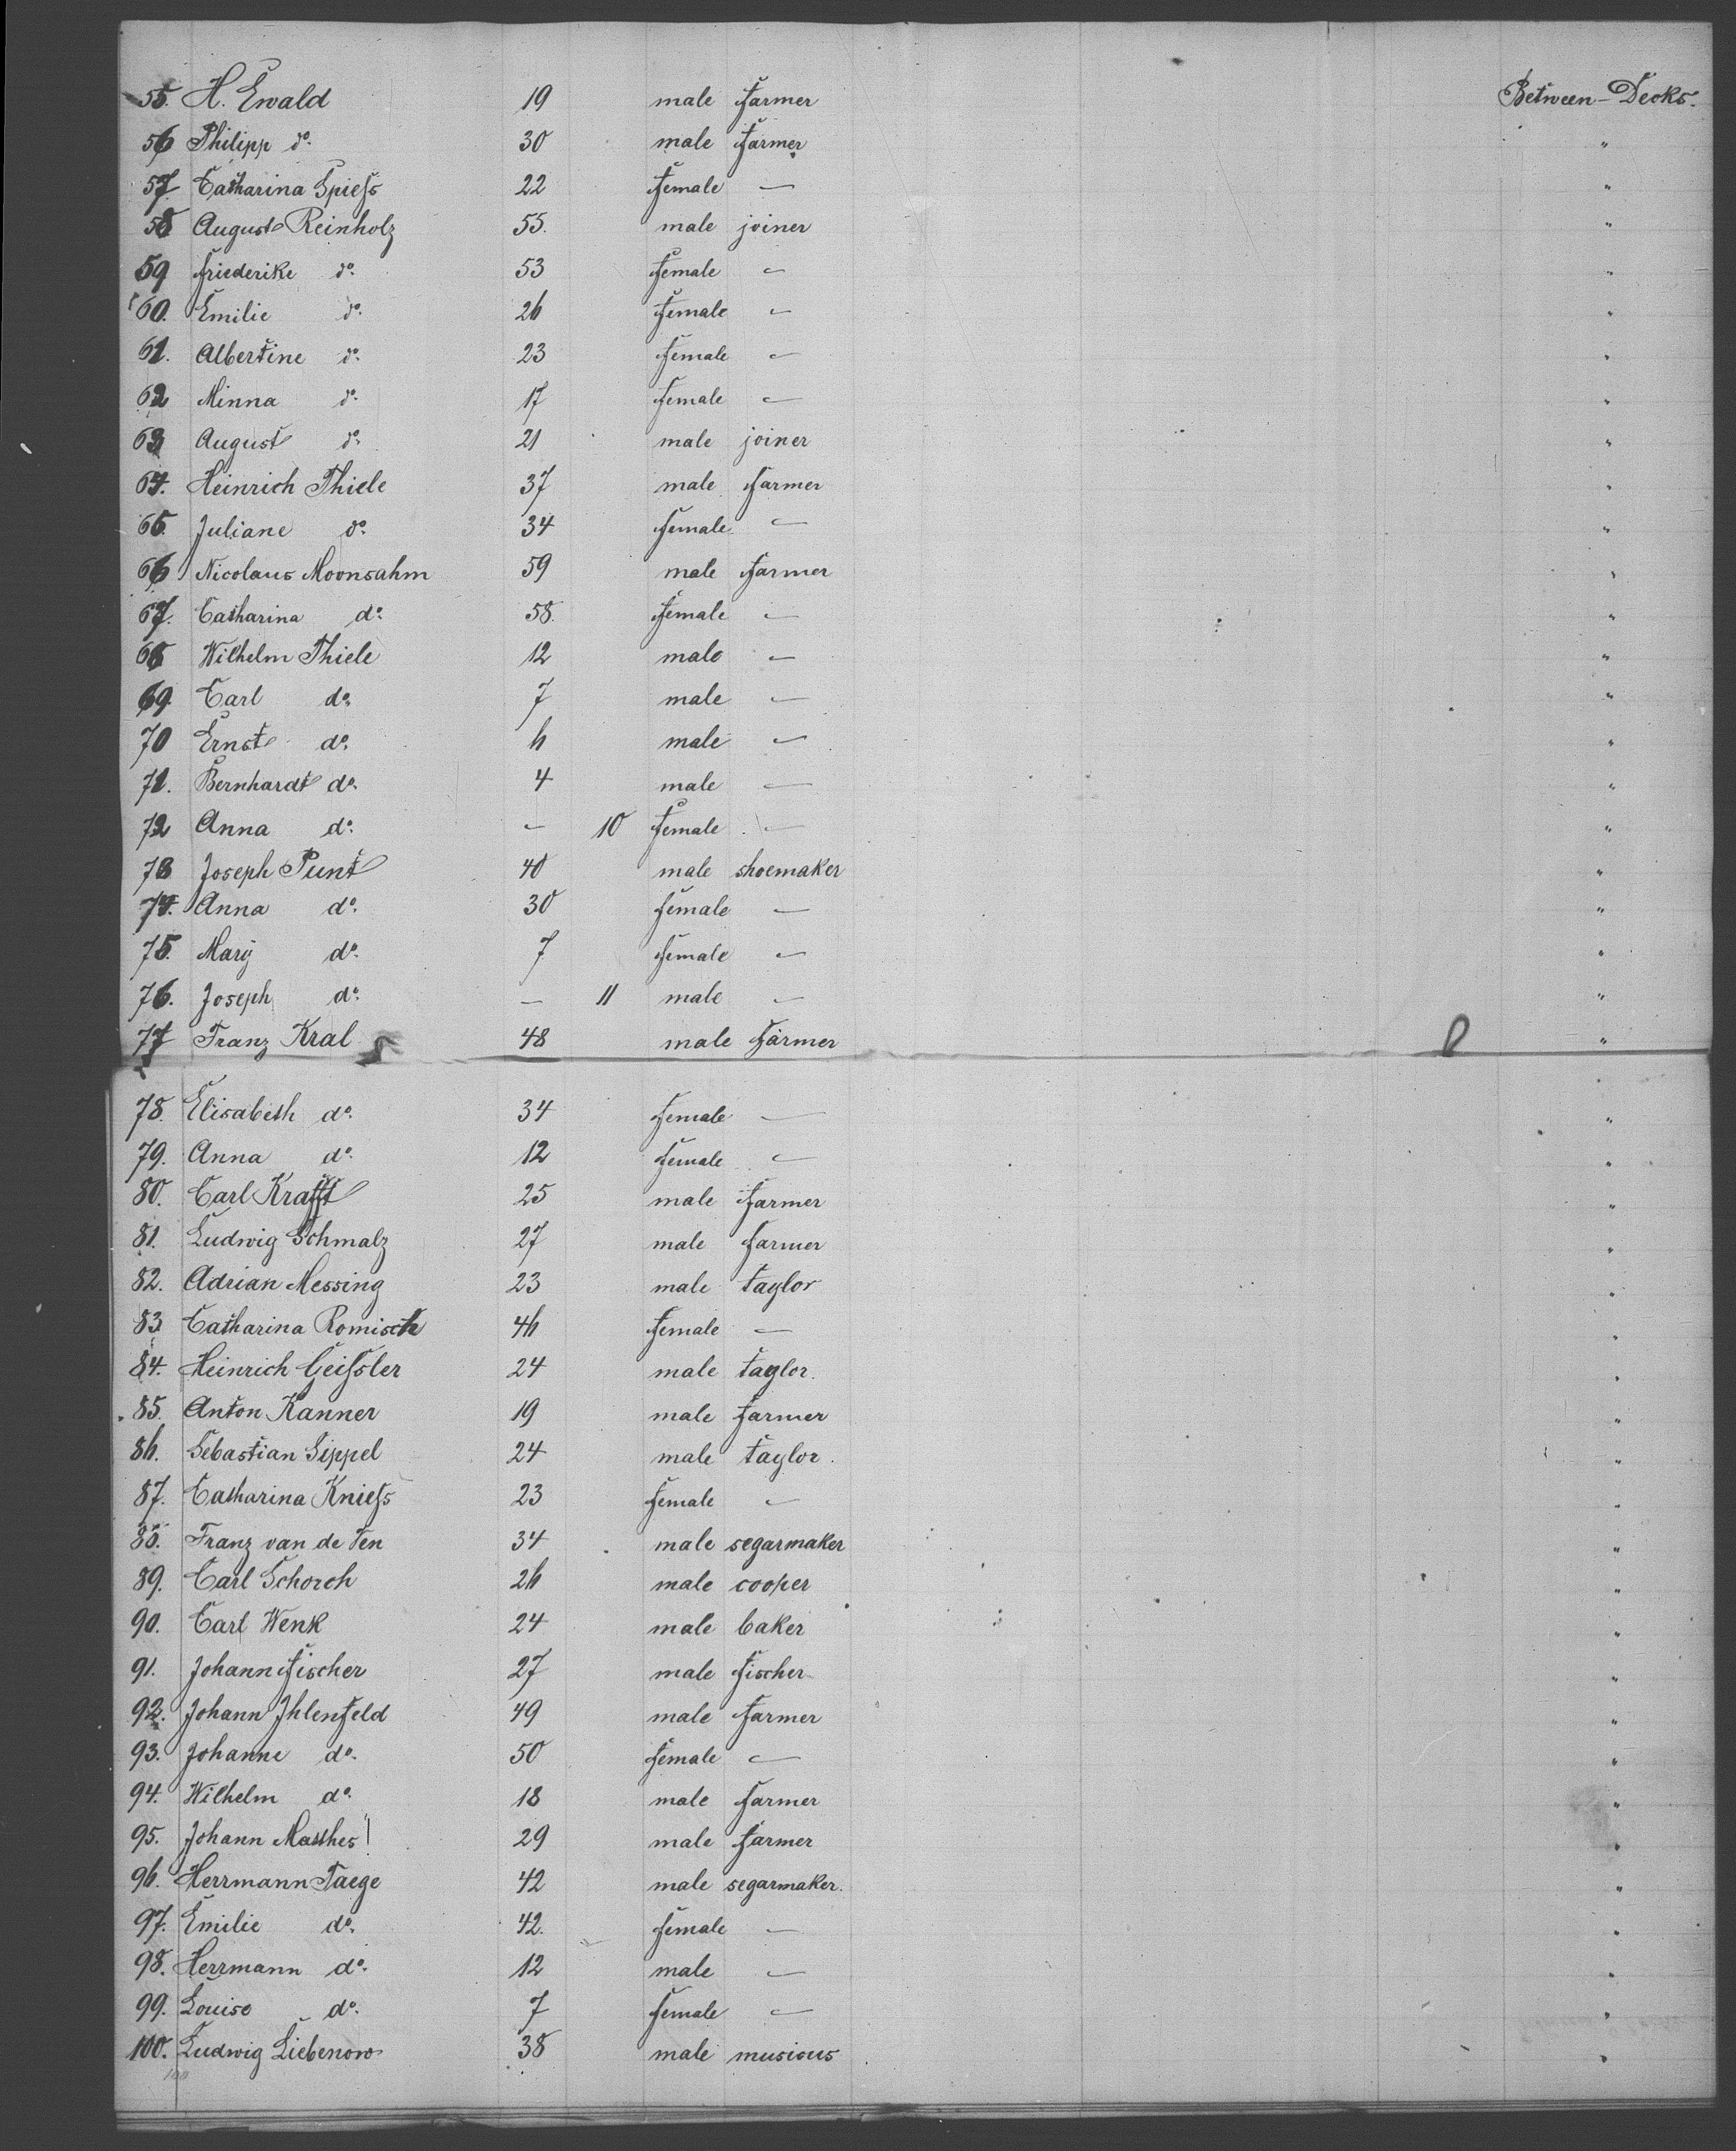 55. H. Ewald 19 male farmer Between-Decks.
56 Philipp do. 30 male farmer "
57. Catharina Spieſs 22 female — "
58 August Reinholz 55. male joiner "
59 Friederike do. 53 female — "
60. Emilie do. 26 female — "
61. Albertine do. 23 female — "
62 Minna do. 17 female — "
63 August do. 21 male joiner "
64. Heinrich Thiele 37 male farmer "
65. Juliane do. 34 female — "
66 Nicolaus Moonsahm 59 male farmer "
67. Catharina do. 58. female — "
68 Wilhelm Thiele 12 male — "
69. Carl do. 7 male — "
70 Ernst do. 6 male — "
71. Bernhardt do. 4 male — "
72 Anna do. — 10 female — "
73 Joseph Punt 40 male shoemaker "
74. Anna do. 30 female — "
75. Marÿ do. 7 female — "
76. Joseph do. — 11 male — "
77 Franz Kral 48 male farmer "
78. Elisabeth do. 34 female — "
79. Anna do. 12 female — "
80. Carl Krafft 25 male farmer "
81. Ludwig Schmalz 27 male farmer "
82. Adrian Messing 23 male taylor "
83 Catharina Romisch 46 female — "
84. Heinrich Geiſsler 24 male taylor. "
85. Anton Kanner 19 male farmer "
86. Sebastian Sippel 24 male taylor. "
87. Catharina Knieſs 23 female — "
88. Franz van de Ven 34 male segarmaker "
89. Carl Schorch 26 male cooper "
90. Carl Wenk 24 male baker "
91. Johann Fischer 27 male fischer "
92. Johann Ihlenfeld 49 male farmer "
93. Johanne do. 50 female — "
94. Wilhelm do. 18 male farmer "
95. Johann Matthes 29 male farmer "
96. Herrmann Taege 42 male segarmaker. "
97. Emilie do. 42. female — "
98. Herrmann do. 12 male — "
99. Louise do. 7 female — "
100. Ludwig Liebenow 38 male musicus "
100